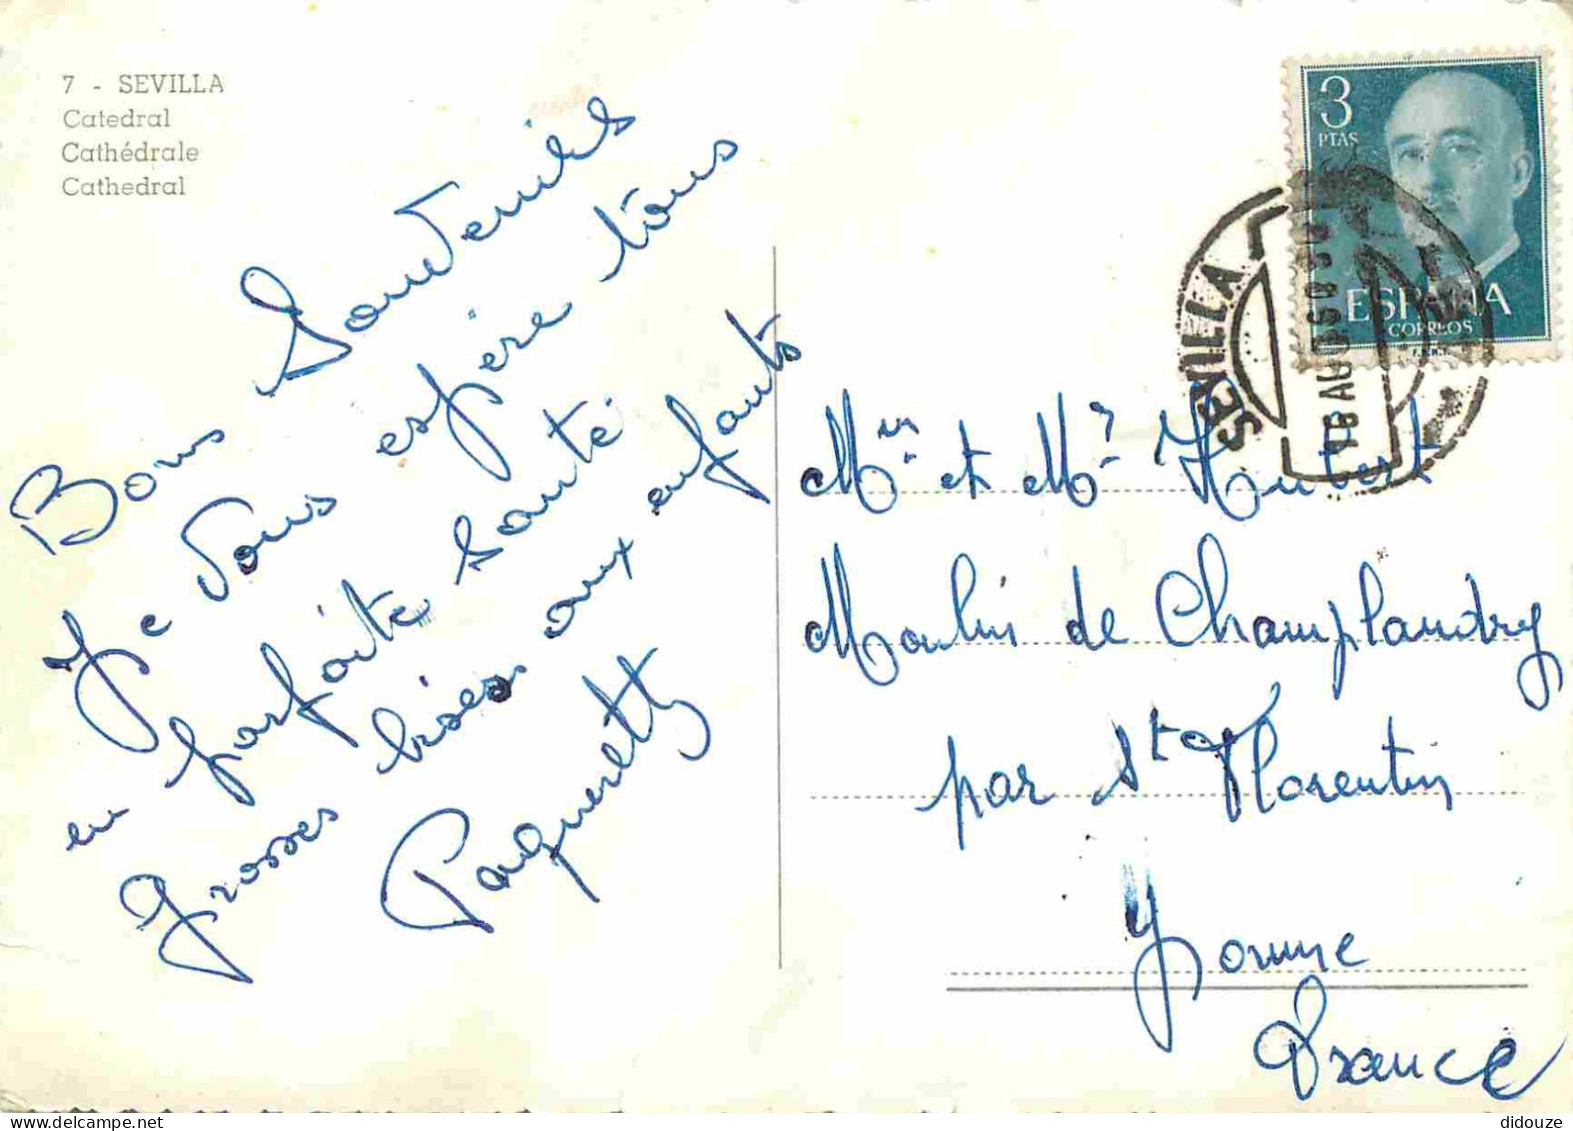 7 - SEVILLA
Catedral
Cathédrale
Cathedral
Bons Souvenirs
Je vous espère tous
en parfaite santé
Grosses bises aux enfants
Paquerette
3
PTAS
ESPAÑA
CORREOS
SEVILLA
Mr et Mme Hubert
Moulin de Champlandry
par St Florentin
Yonne
France
didouze